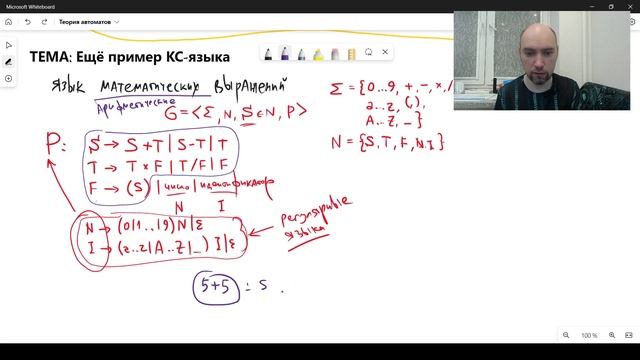 Microsoft Whiteboard
Теория автоматов
ТЕМА: Ещё пример КС-языка
язык математических выражений
Арифметические
G = <Σ, N, S ∈ N, P>
Σ = {0...9, +, -, ×, /
a...z, (, ),
A...Z, _ }
N = {S, T, F, N, I}
P:
S → S + T | S - T | T
T → T × F | T / F | F
F → (S) | число | идентификатор
N I
N → (0|1..|9) N | ε
I → (a..z | A..Z | _) I | ε
регулярные
языки
5+5 = 5
100 %